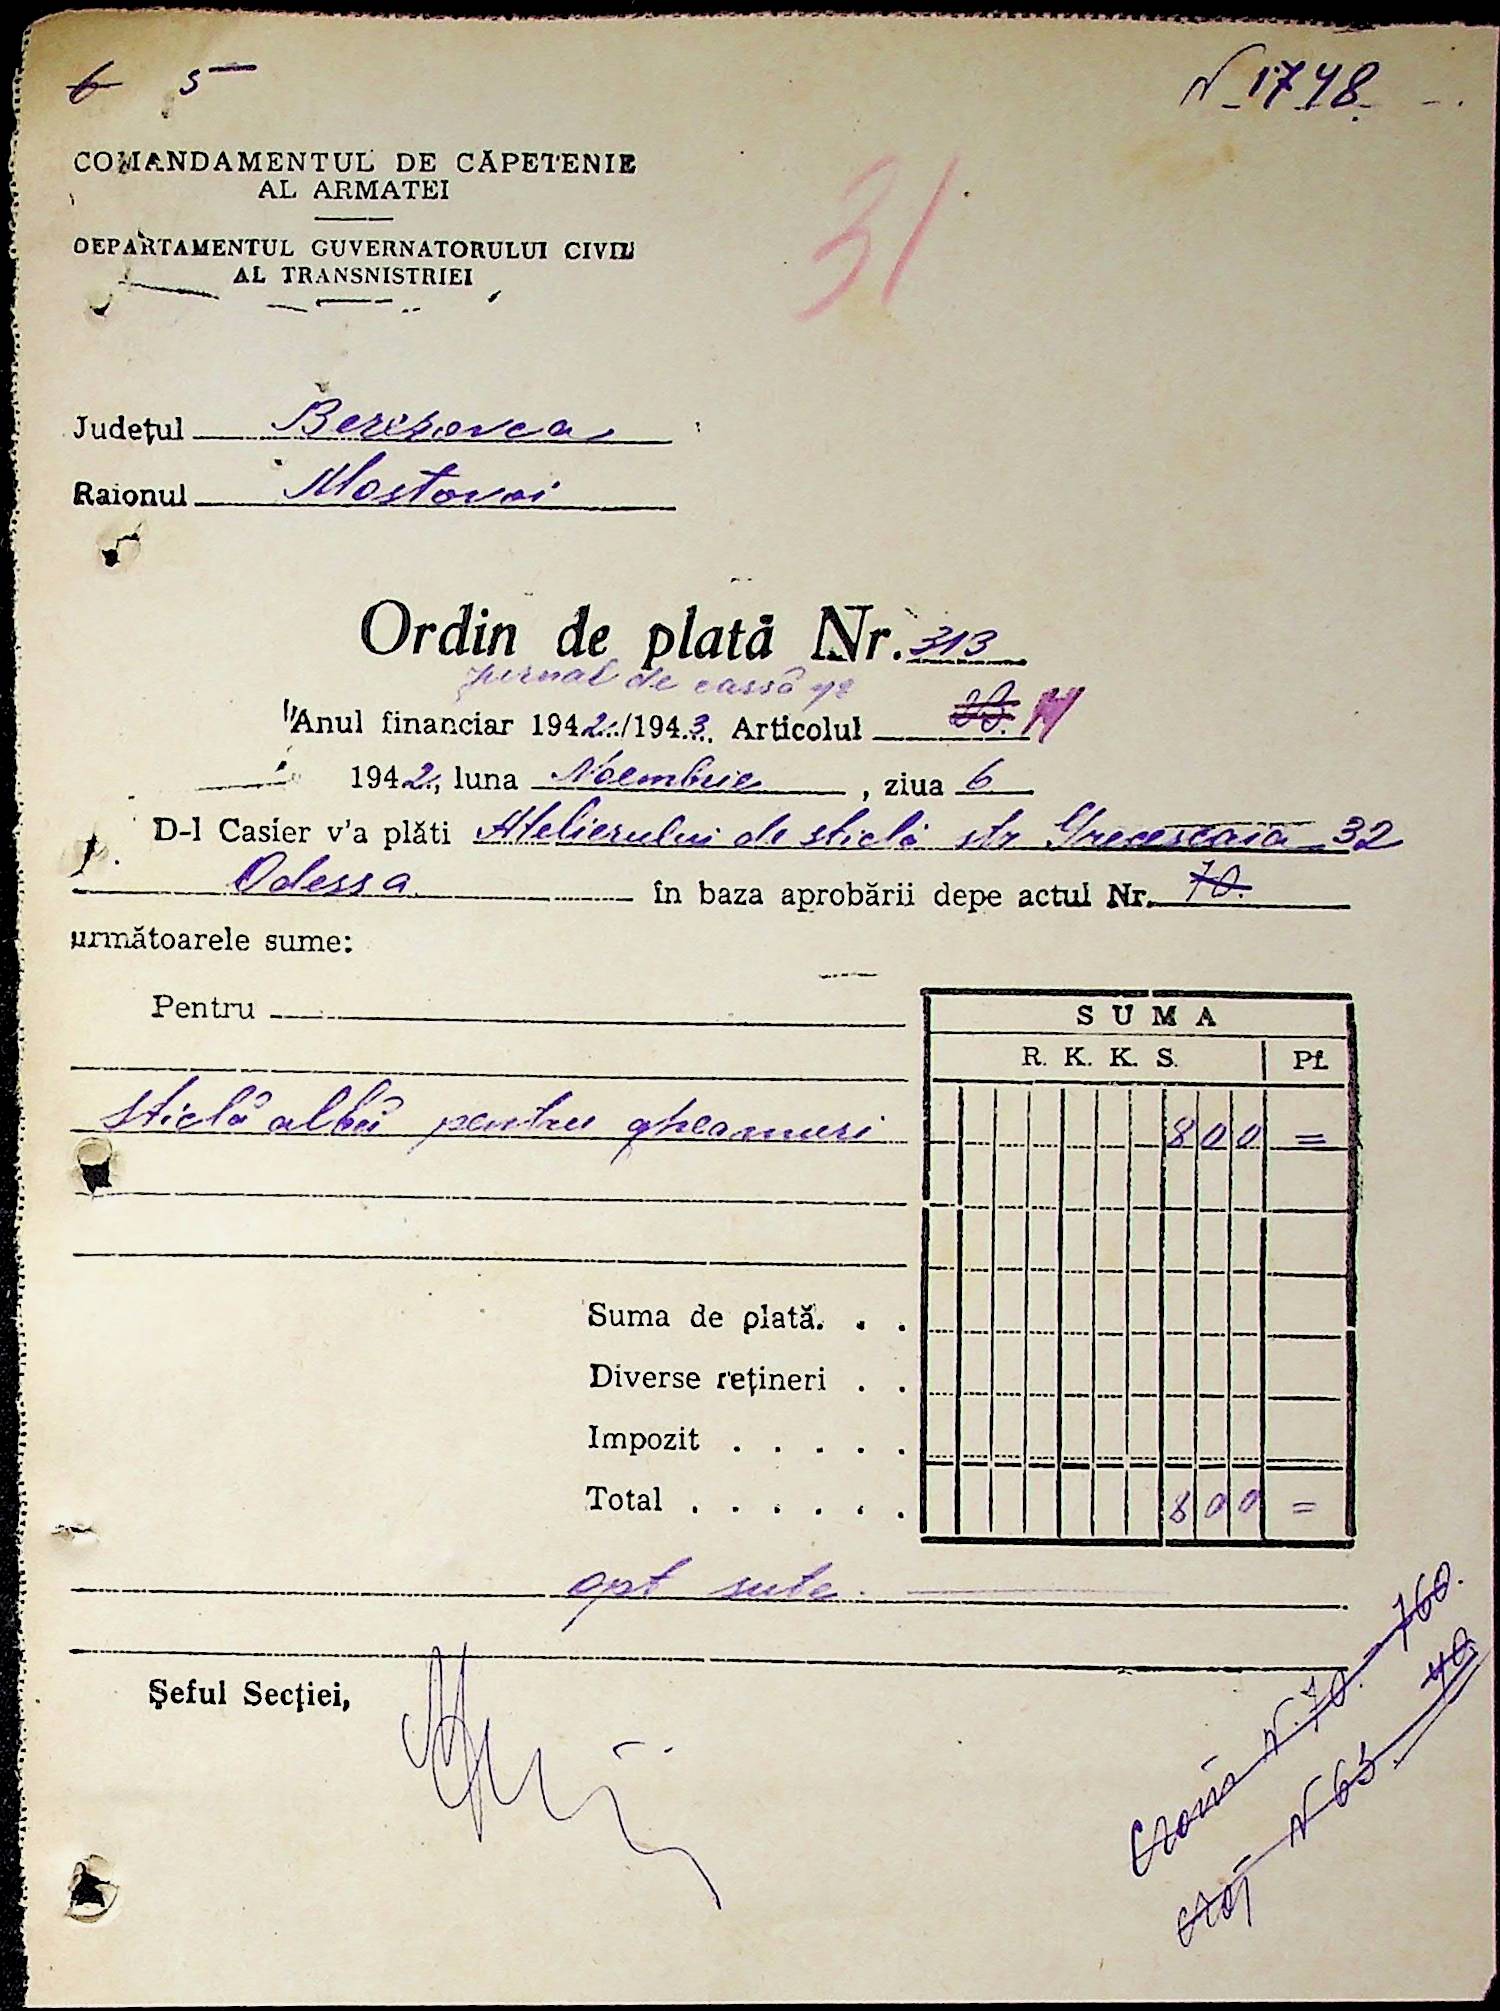 6 5
N 1748.
COMANDAMENTUL DE CĂPETENIE
AL ARMATEI
31
DEPARTAMENTUL GUVERNATORULUI CIVIL
AL TRANSNISTRIEI
Județul Berezovca
Raionul Mostovoi
Ordin de plată Nr. 313
jurnal de cassă
Anul financiar 1942/1943. Articolul 14
1942, luna Noembrie, ziua 6
D-l Casier v'a plăti Atelierului de sticlă str Grecescaia 32
Odessa în baza aprobării depe actul Nr. 70.
următoarele sume:
Pentru
SUMA
R. K. K. S. Pf.
sticlă albă pentru gheamuri 800 =
Suma de plată. . .
Diverse rețineri . .
Impozit . . . . .
Total . . . . . . 800 =
opt sute.
Șeful Secției,
N. 70. 760.
N 63. 40.